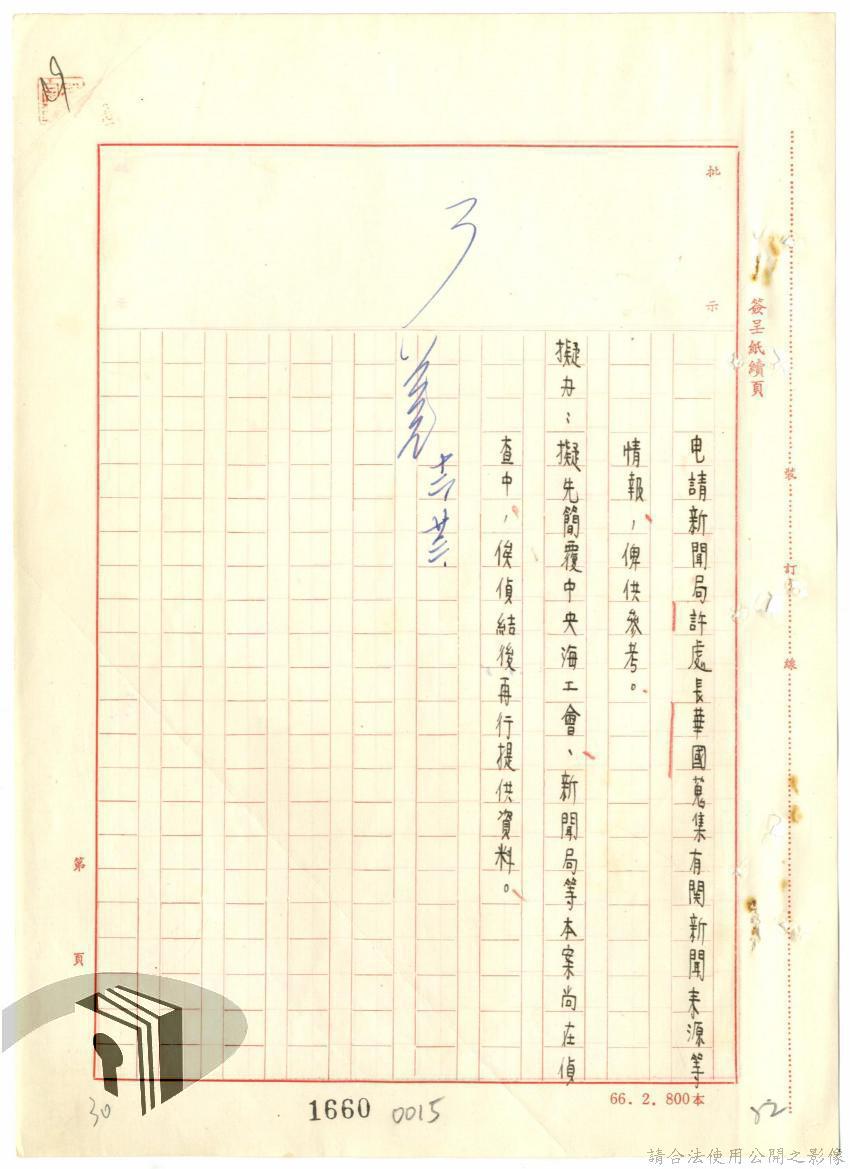 批示
簽呈紙續頁
裝訂線
电請新聞局許處長華國蒐集有関新聞来源等
情報，俾供參考。
擬办：擬先簡覆中央海工會、新聞局等本案尚在偵
查中，俟偵結後再行提供資料。
十二、廿三、
第 頁
66. 2. 800本
30
1660
0015
52
請合法使用公開之影像